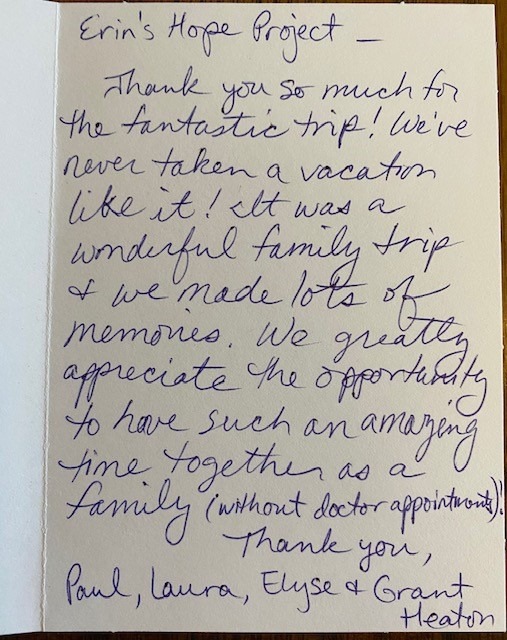 Erin's Hope Project —
Thank you so much for
the fantastic trip! We've
never taken a vacation
like it! It was a
wonderful family trip
& we made lots of
memories. We greatly
appreciate the opportunity
to have such an amazing
time together as a
family (without doctor appointments)!
Thank you,
Paul, Laura, Elyse & Grant
Heaton